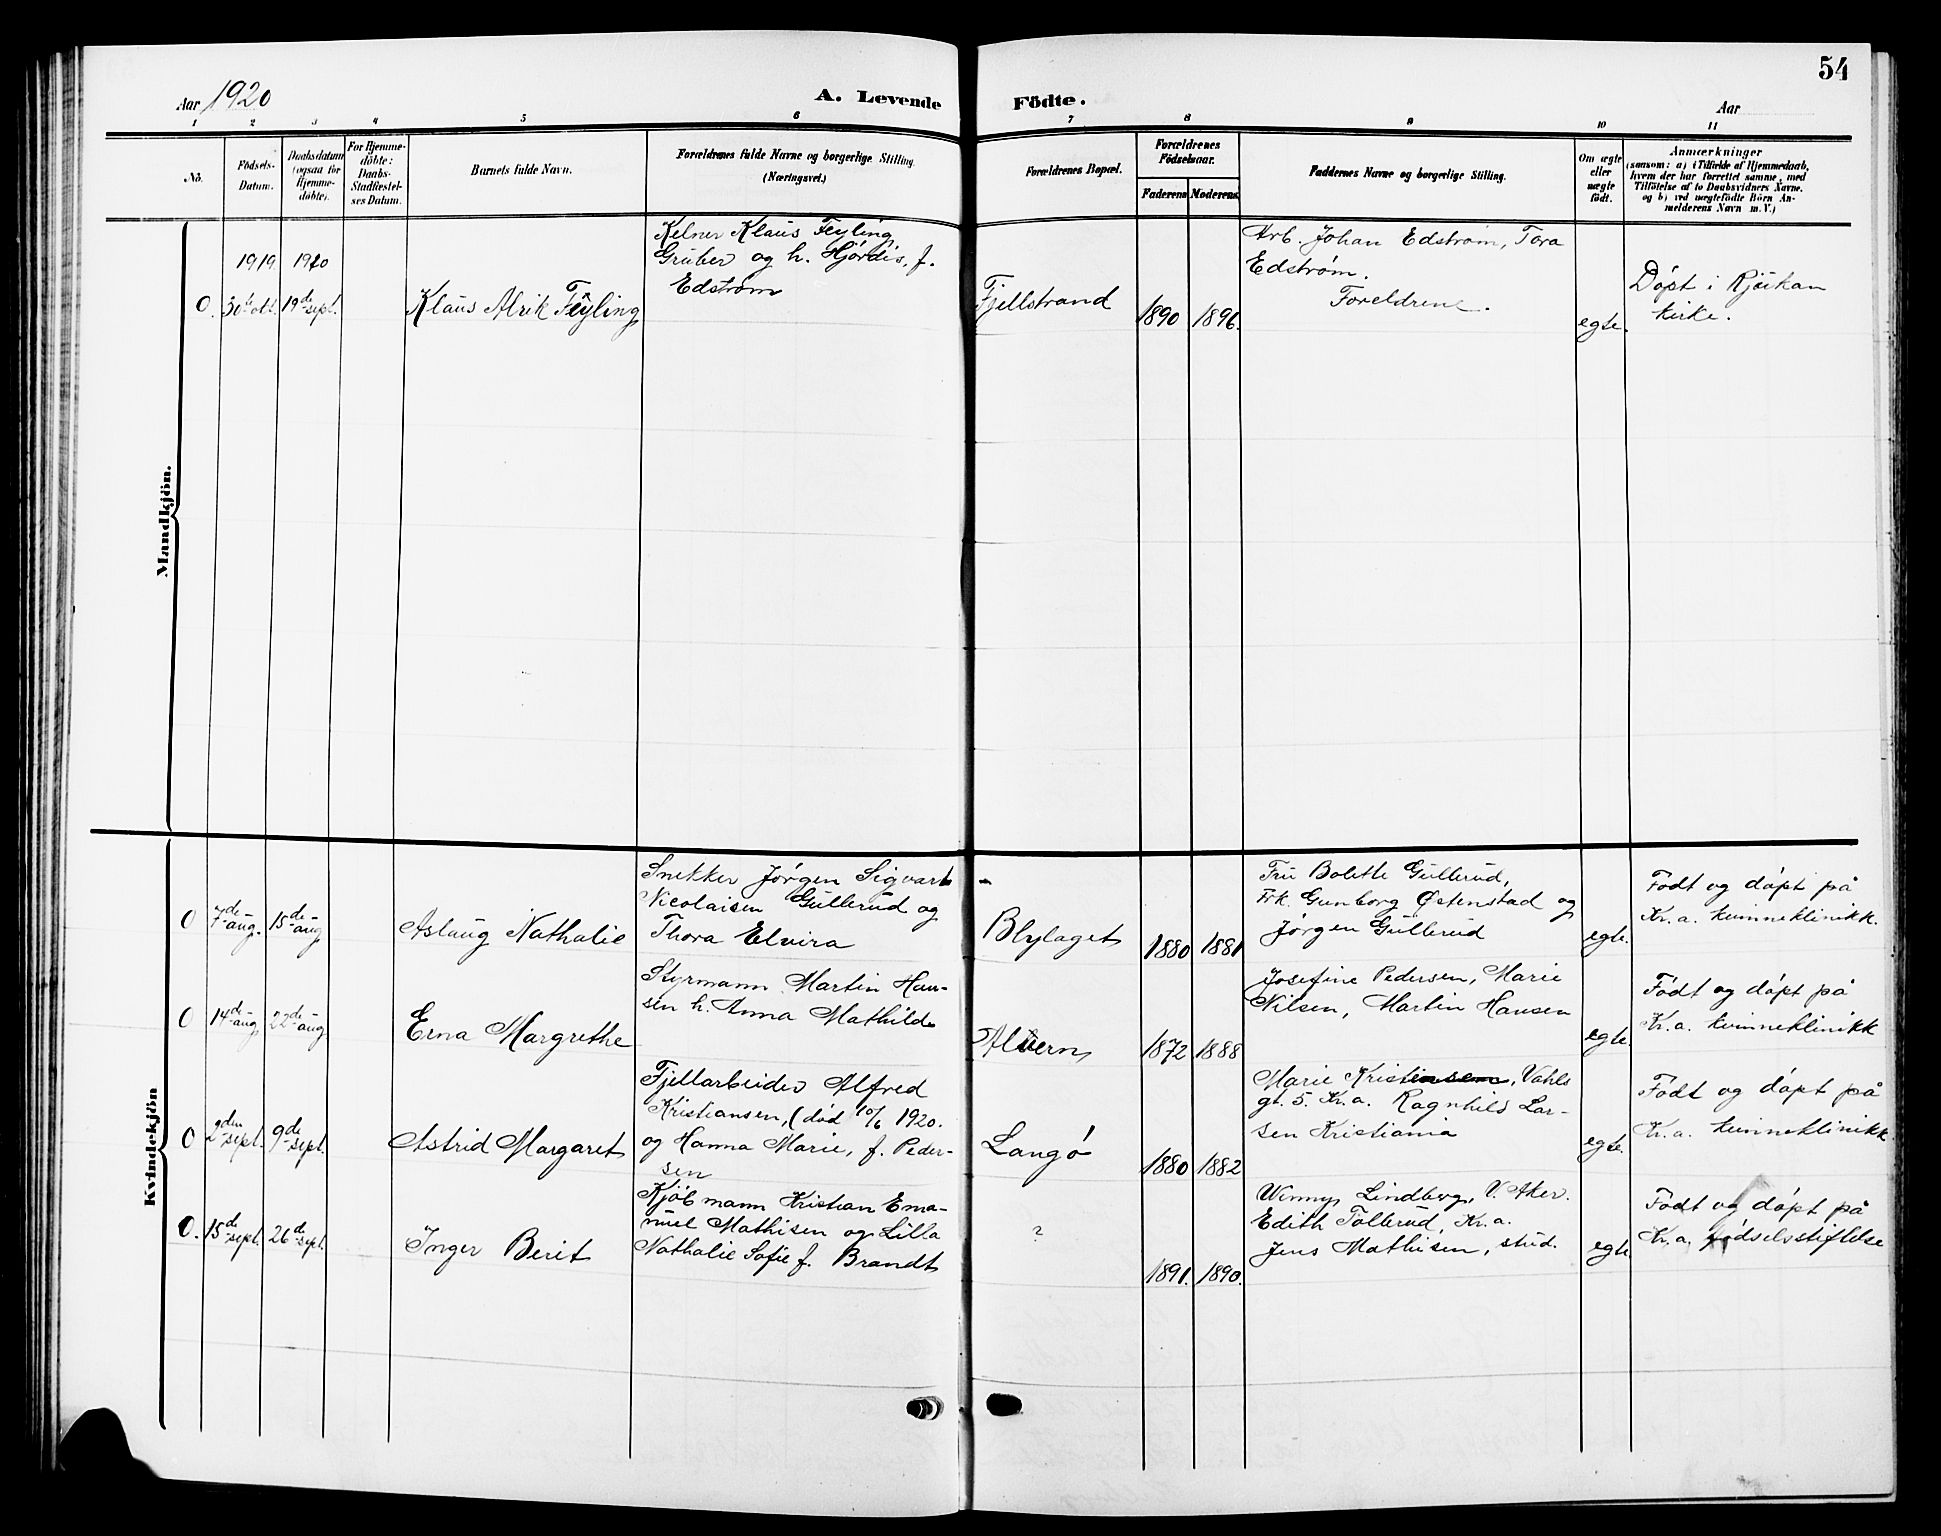 54
Aar 1920
A. Levende
Födte.
Aar
1 2 3 4 5 6 7 8 9 10 11
No.
Födsels-
Datum.
Daabsdatum
(ogsaa for
Hjemme-
döbte).
For Hjemme-
döbte:
Daabs-
Stadfæstel-
ses Datum.
Barnets fulde Navn.
Forældrenes fulde Navne og borgerlige Stilling.
(Næringsvei.)
Forældrenes Bopæl.
Forældrenes
Födselsaar.
Faderens
Moderens
Faddernes Navne og borgerlige Stilling.
Om ægte
eller
uægte
födt.
Anmærkninger
(saasom: a) i Tilfælde af Hjemmedaab,
hvem der har forrettet samme, med
Tilföielse af to Daabsvidners Navne.
og b) ved uægtefödte Börn An-
melderens Navn m. V.)
Mandkjön.
0.
1919
30te okt.
1920
19de sept.
Klaus Alrik Feyling
Kelner Klaus Feyling
Gruber og h. Hjördis, f.
Edström
Fjellstrand
1890
1896.
Arb. Johan Edström, Tora
Edström.
Foreldrene.
egte.
Döpt i Rjukan
kirke.
Kvindekjön
0
7de aug.
15de aug
Aslaug Nathalie
Snekker Jörgen Sigvart
Nicolaisen Gullerud og
Thora Elvira
Blylaget
1880
1881
Fru Bolette Gullerud,
Frk. Gunborg Østenstad og
Jørgen Gullerud
egte.
Födt og döpt på
Kr.a. kvinneklinikk.
0
14de aug
22de aug
Erna Margrethe
Styrmann Martin Han-
sen h. Anna Mathilde
Alvern
1872
1888
Josefine Pedersen, Marie
Nilsen, Martin Hansen
egte
Födt og döpt på
Kr.a. kvinneklinikk
0
2den sept.
9de sept.
Astrid Margaret
Fjellarbeider Alfred
Kristiansen, (död 10/6 1920.
og Hanna Marie, f. Peder-
sen
Langö
1880
1882
Marie Kristinsen, Vahls
gt. 5. Kr.a. Ragnhild Lar-
sen Kristiania
egte.
Födt og döpt på
Kr.a. kvinneklinikk.
0.
15de sept.
26de sept.
Inger Berit
Kjöbmann Kristian Ema-
nuel Mathisen og Lilla
Nathalie Sofie f. Brandt
?
1891.
1890.
Winny Lindberg, V. Aker.
Edith Tollerud, Kr.a.
Jens Mathisen, stud.
egte
Födt og döpt på
Kr.a. födselsstiftelse